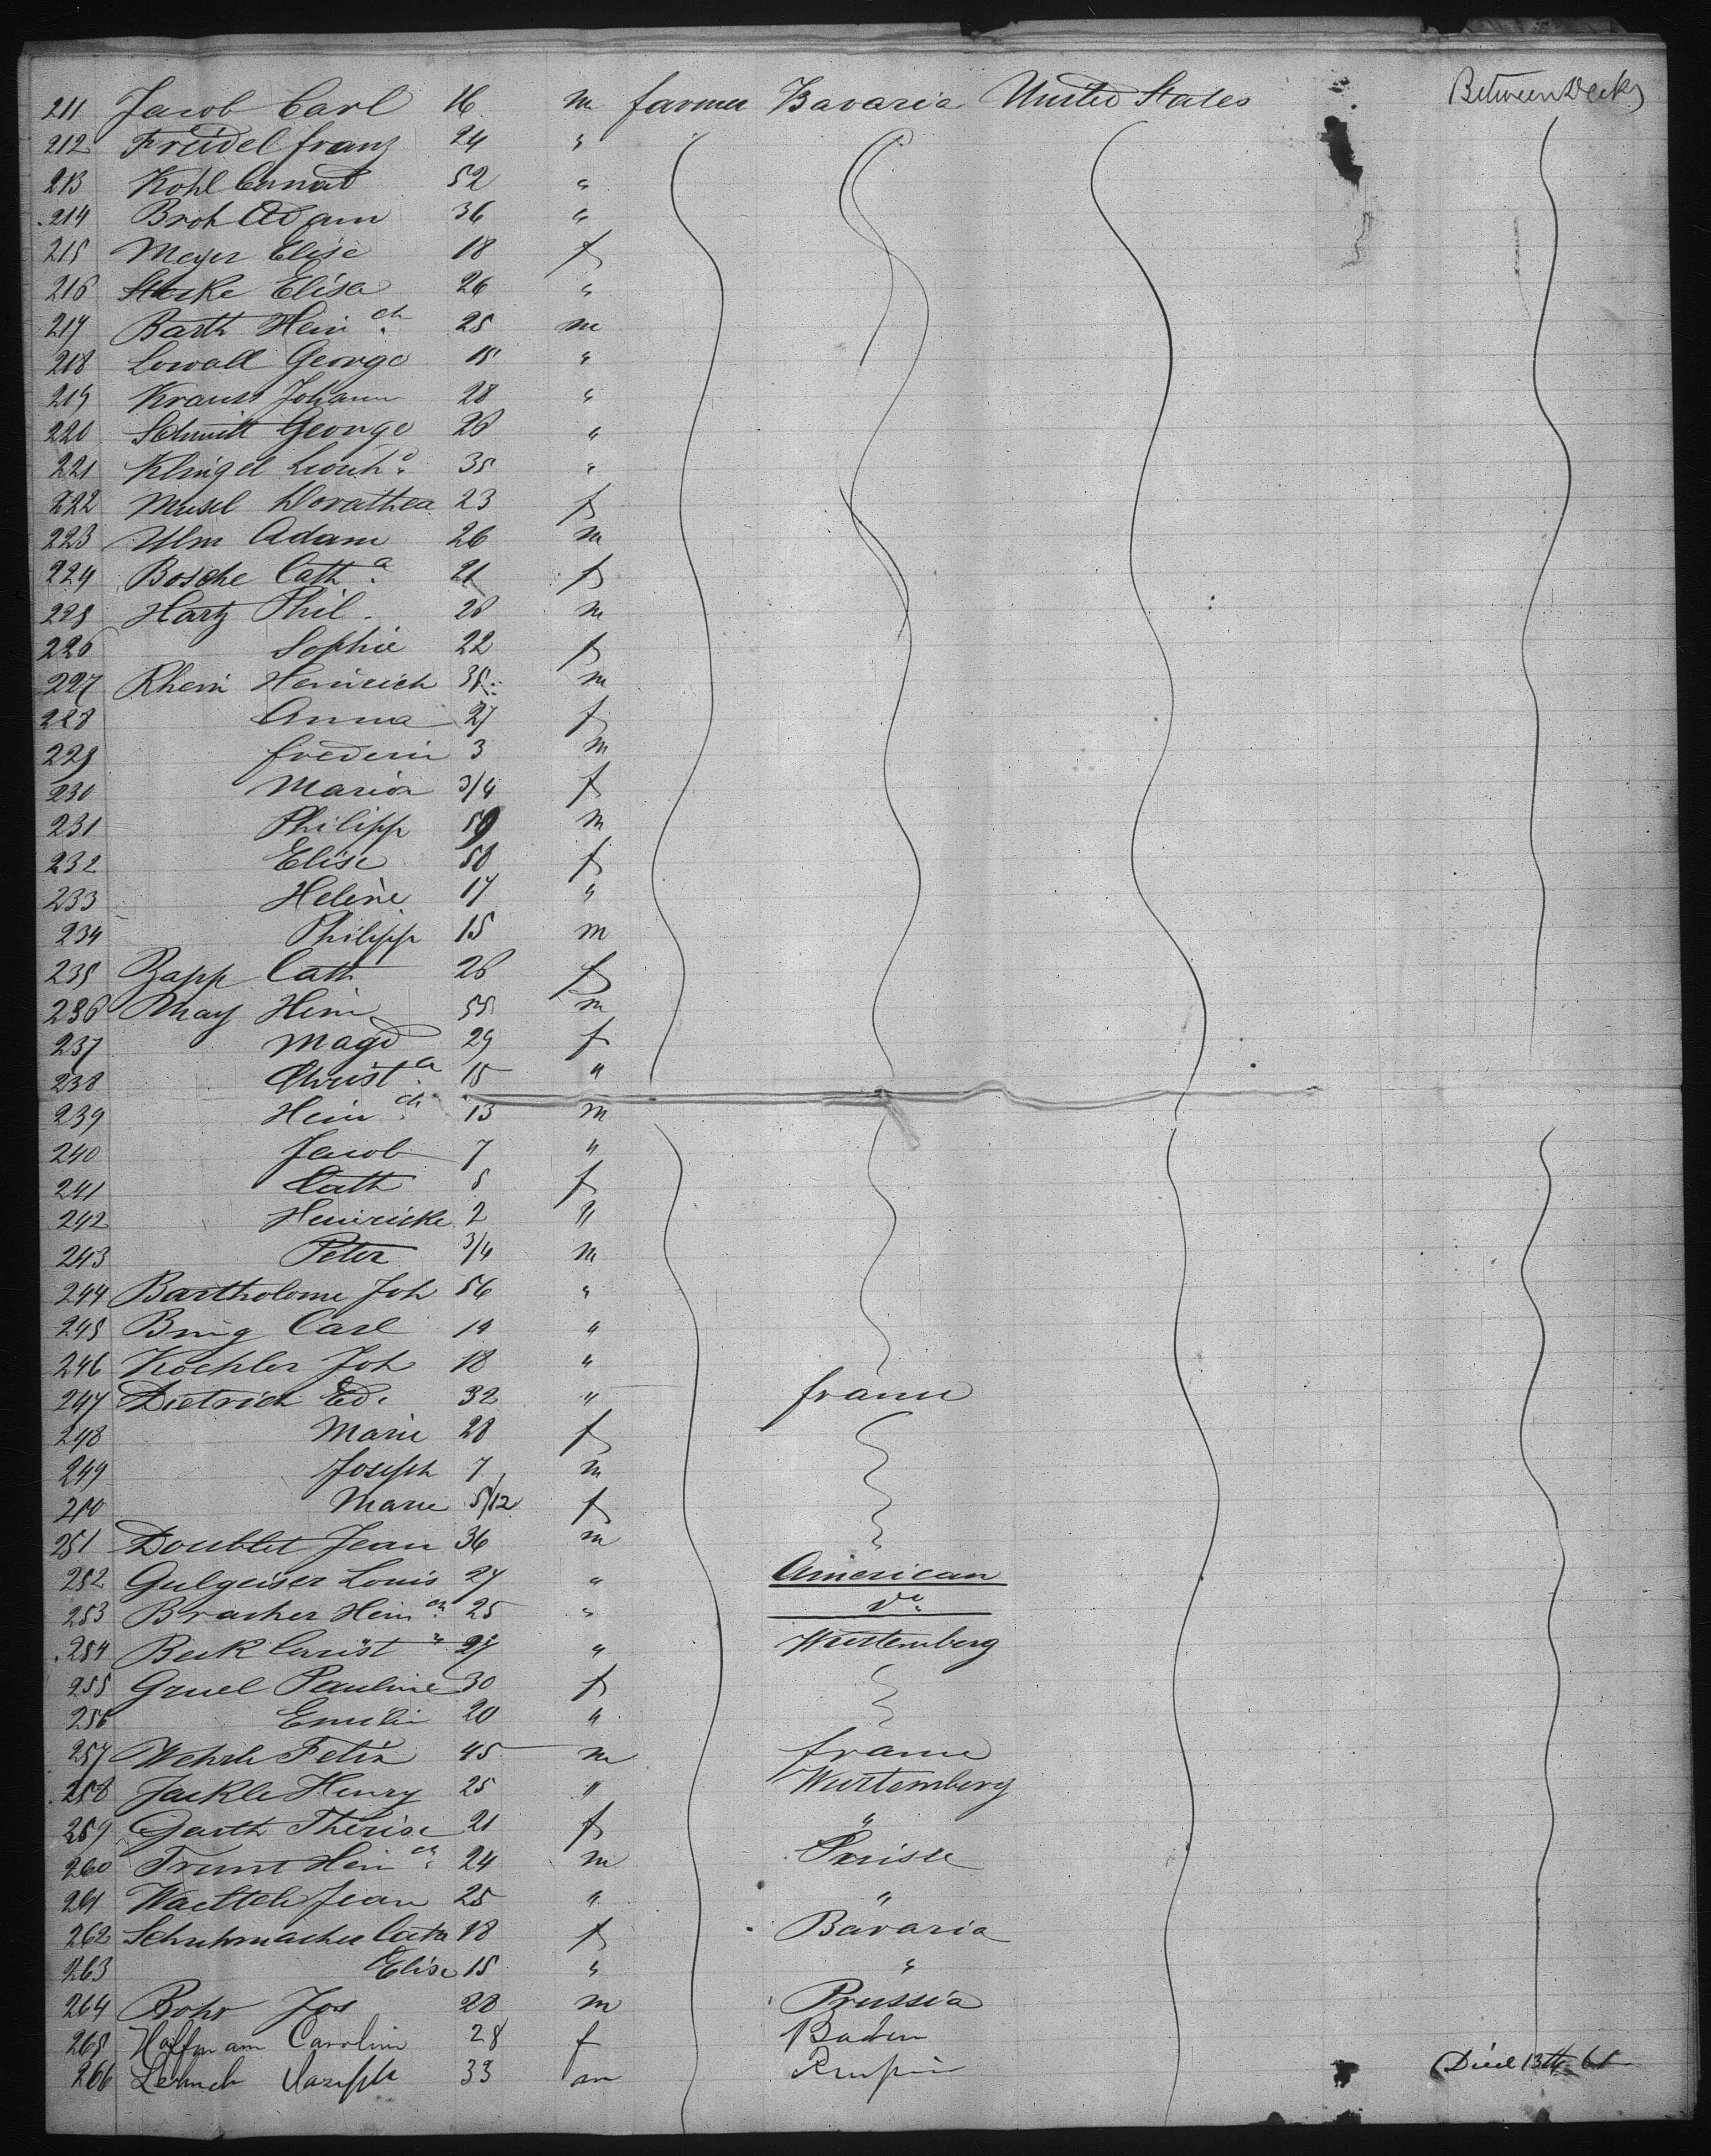 211 Jacob Carl 16 m farmer Bavaria United States Between Decks
212 Freidel franz 24 "
213 Kohl Conrad 52 "
214 Broh Adam 36 "
215 Meyer Elise 18 f
216 Elisa 26 "
217 Barth Hein ch 25 m
218 Lowall George "
219 Krauss Johann 28 "
220 Schmitt George 28 "
221 Klingel 35 "
222 Musel Dorathea 23 f
223 Ulm Adam 26 m
224 Bosche Cath a 21 f
225 Hartz Phil. 28 m
226 Sophie 22 f
227 Rhein Heinrich m
228 Anna 27 f
229 3 m
230 Maria 3/4 f
231 Philipp 59 m
232 Elise 50 f
233 Helene 17 "
234 Philipp 15 m
235 Zapp Cath 28 f
236 May Hein m
237 Magd 29 f
238 Christ a 15 "
239 Hein ch 13 m
240 Jacob 7 "
241 Cath 5 f
242 Heinricke 2 "
243 Peter 3/4 m
244 Bartholome Joh 56 "
245 Carl 19 "
246 Kochler Joh 18 "
247 Dietrich Ed. 32 " france
248 Marie 28 f
249 Joseph 7 m
250 Marie 5/12 f
251 Doublet Jean 36 m
252 Gulgeiser Louis 27 " American
253 Bracher Hein ch 25 " do
254 Beck Christ n 27 " Wurtemberg
255 Gruel Pauline 30 f
256 Emilie 20 "
257 Wehrle Felix 45 m france
258 Jackle Henry 25 " Wurtemberg
259 Garth Therise 21 f "
260 Hein ch 24 m
261 Jean 25 " "
262 Schuhmacher Cath 18 f Bavaria
263 Elise 15 " "
264 Bohr Jos 28 m Prussia
265 Hoffmann Carolin 28 f Baden
266 33 m Died 13th